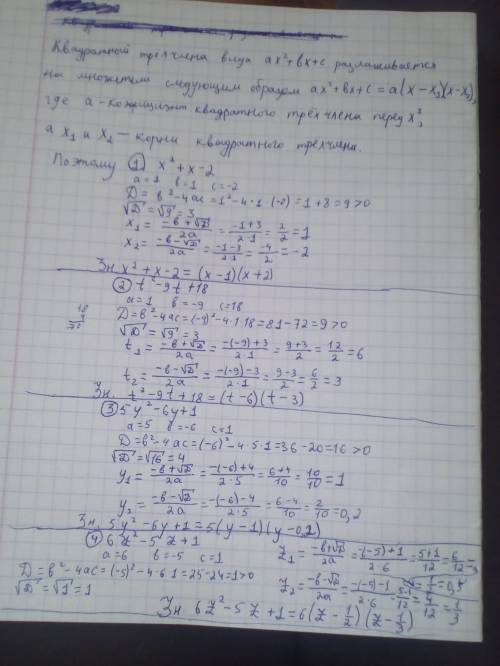 Квадратный трехчлена вида ax²+bx+c разлаживается
на множетели следующим образом ax²+bx+c = a(x-x₁)(x-x₂),
где a - коэффициэнт квадратного трёхчлена перед x²,
а x₁ и x₂ — корни квадратного трёхчлена.
Поэтому ① x²+x-2
a=1 b=1 c=-2
D = b²-4ac = 1²-4·1·(-2) = 1+8 = 9 > 0
√D = √9 = 3
x₁ = (-b+√D)/2a = (-1+3)/2·1 = 2/2 = 1
x₂ = (-b-√D)/2a = (-1-3)/2·1 = -4/2 = -2
Зн. x²+x-2 = (x-1)(x+2)
② t²-9t+18
a=1 b=-9 c=18
18
72
D = b²-4ac = (-9)²-4·1·18 = 81-72 = 9 > 0
√D = √9 = 3
t₁ = (-b+√D)/2a = (-(-9)+3)/2·1 = (9+3)/2 = 12/2 = 6
t₂ = (-b-√D)/2a = (-(-9)-3)/2·1 = (9-3)/2 = 6/2 = 3
Зн. t²-9t+18 = (t-6)(t-3)
③ 5y²-6y+1
a=5 b=-6 c=1
D = b²-4ac = (-6)²-4·5·1 = 36-20 = 16 > 0
√D = √16 = 4
y₁ = (-b+√D)/2a = (-(-6)+4)/2·5 = (6+4)/10 = 10/10 = 1
y₂ = (-b-√D)/2a = (-(-6)-4)/2·5 = (6-4)/10 = 2/10 = 0,2
Зн. 5y²-6y+1 = 5(y-1)(y-0,2)
④ 6z²-5z+1
a=6 b=-5 c=1
D = b²-4ac = (-5)²-4·6·1 = 25-24 = 1 > 0
√D = √1 = 1
z₁ = (-b+√D)/2a = (-(-5)+1)/2·6 = (5+1)/12 = 6/12 =
= 1/2 = 0,5
z₂ = (-b-√D)/2a = (-(-5)-1)/2·6 = (5-1)/12 = 4/12 = 1/3
Зн. 6z²-5z+1 = 6(z-1/2)(z-1/3)